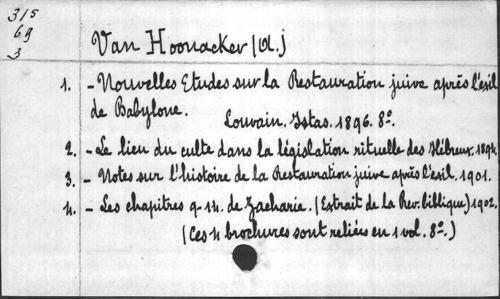 315
69
3
Van Hoonacker (A.)
1. - Nouvelles Etudes sur la Restauration juive après l'exil
de Babylone. Louvain. Istas. 1896. 8º.
2. - Le lieu du culte dans la législation rituelle des Hébreux. 1894.
3. - Notes sur l'histoire de la Restauration juive après l'exil. 1901.
4. - Les chapitres 9-14. de Zacharie. (Extrait de la Rev. biblique) 1902.
(Ces 4 brochures sont reliées en 1 vol. 8º.)